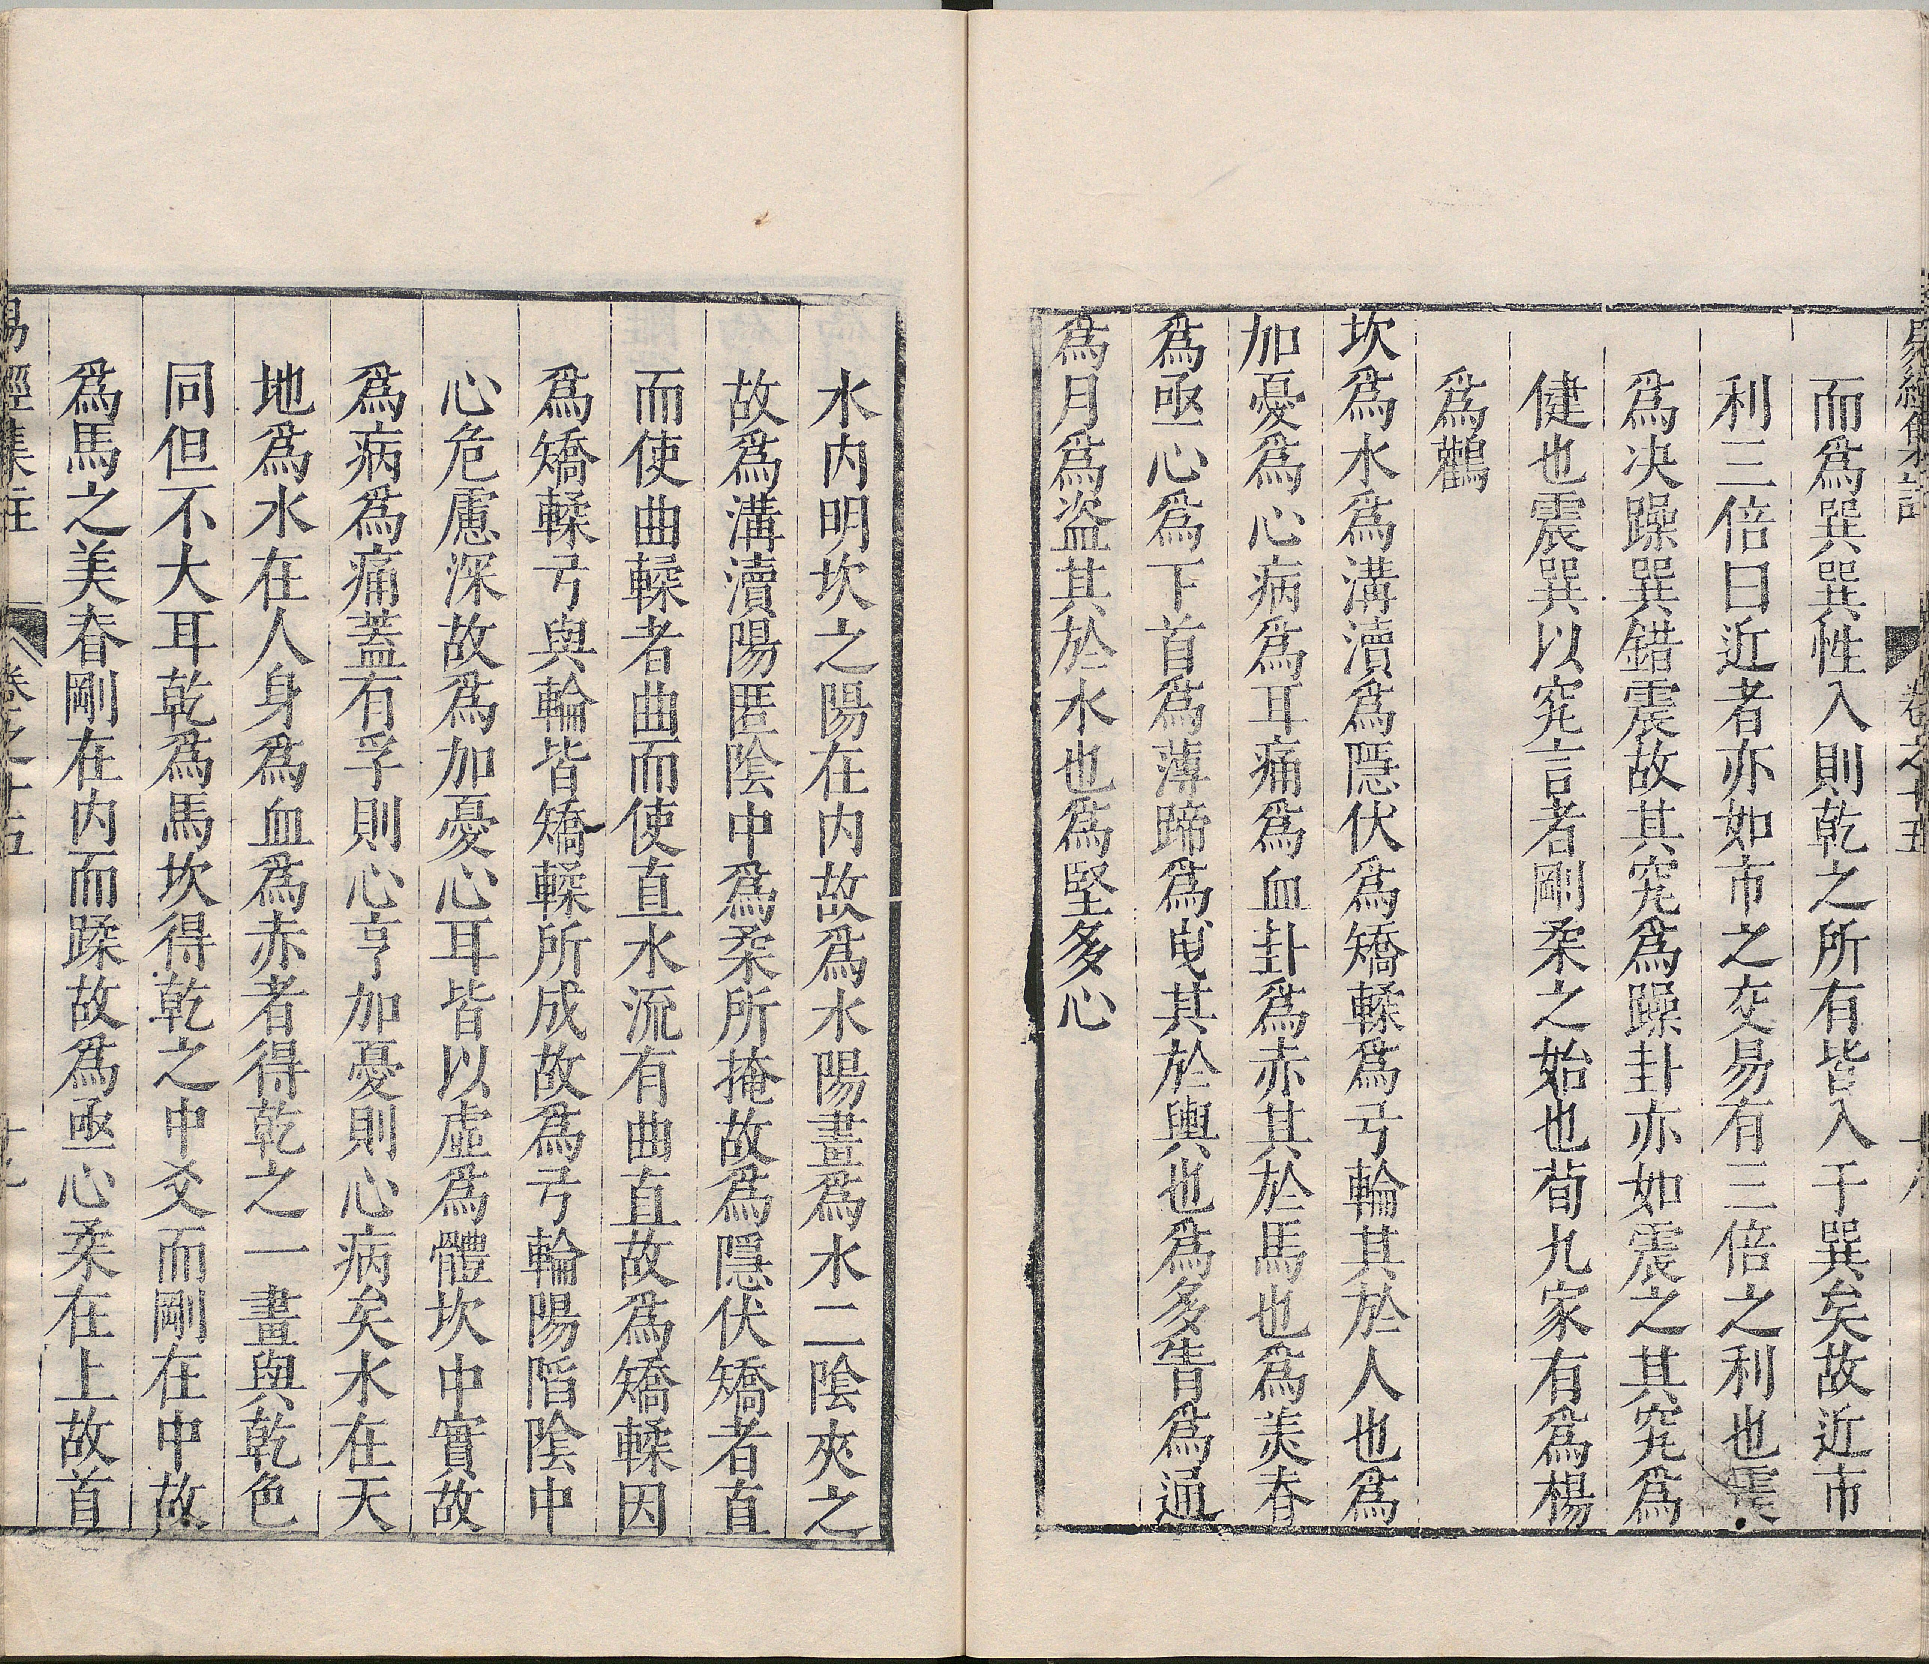 而爲巽巽性入則乾之所有皆入于巽矣故近市
利三倍曰近者亦如市之交易有三倍之利也震
爲决躁巽錯震故其究爲躁卦亦如震之其究爲
健也震巽以究言者剛柔之始也荀九家有爲楊
爲鸛
坎爲水爲溝瀆爲隱伏爲矯輮爲弓輪其於人也爲
加憂爲心病爲耳痛爲血卦爲赤其於馬也爲美脊
爲亟心爲下首爲薄蹄爲曳其於輿也爲多眚爲通
爲月爲盗其於水也爲堅多心
水内明坎之陽在内故爲水陽畫爲水二陰夾之
故爲溝瀆陽匿陰中爲柔所掩故爲隱伏矯者直
而使曲輮者曲而使直水流有曲直故爲矯輮因
爲矯輮弓與輪皆矯輮所成故爲弓輪陽陷陰中
心危慮深故爲加憂心耳皆以虛爲體坎中實故
爲病爲痛蓋有孚則心亨加憂則心病矣水在天
地爲水在人身爲血爲赤者得乾之一畫與乾色
同但不大耳乾爲馬坎得乾之中爻而剛在中故
爲馬之美脊剛在内而蹂故爲亟心柔在上故首
易經集註 卷之十五